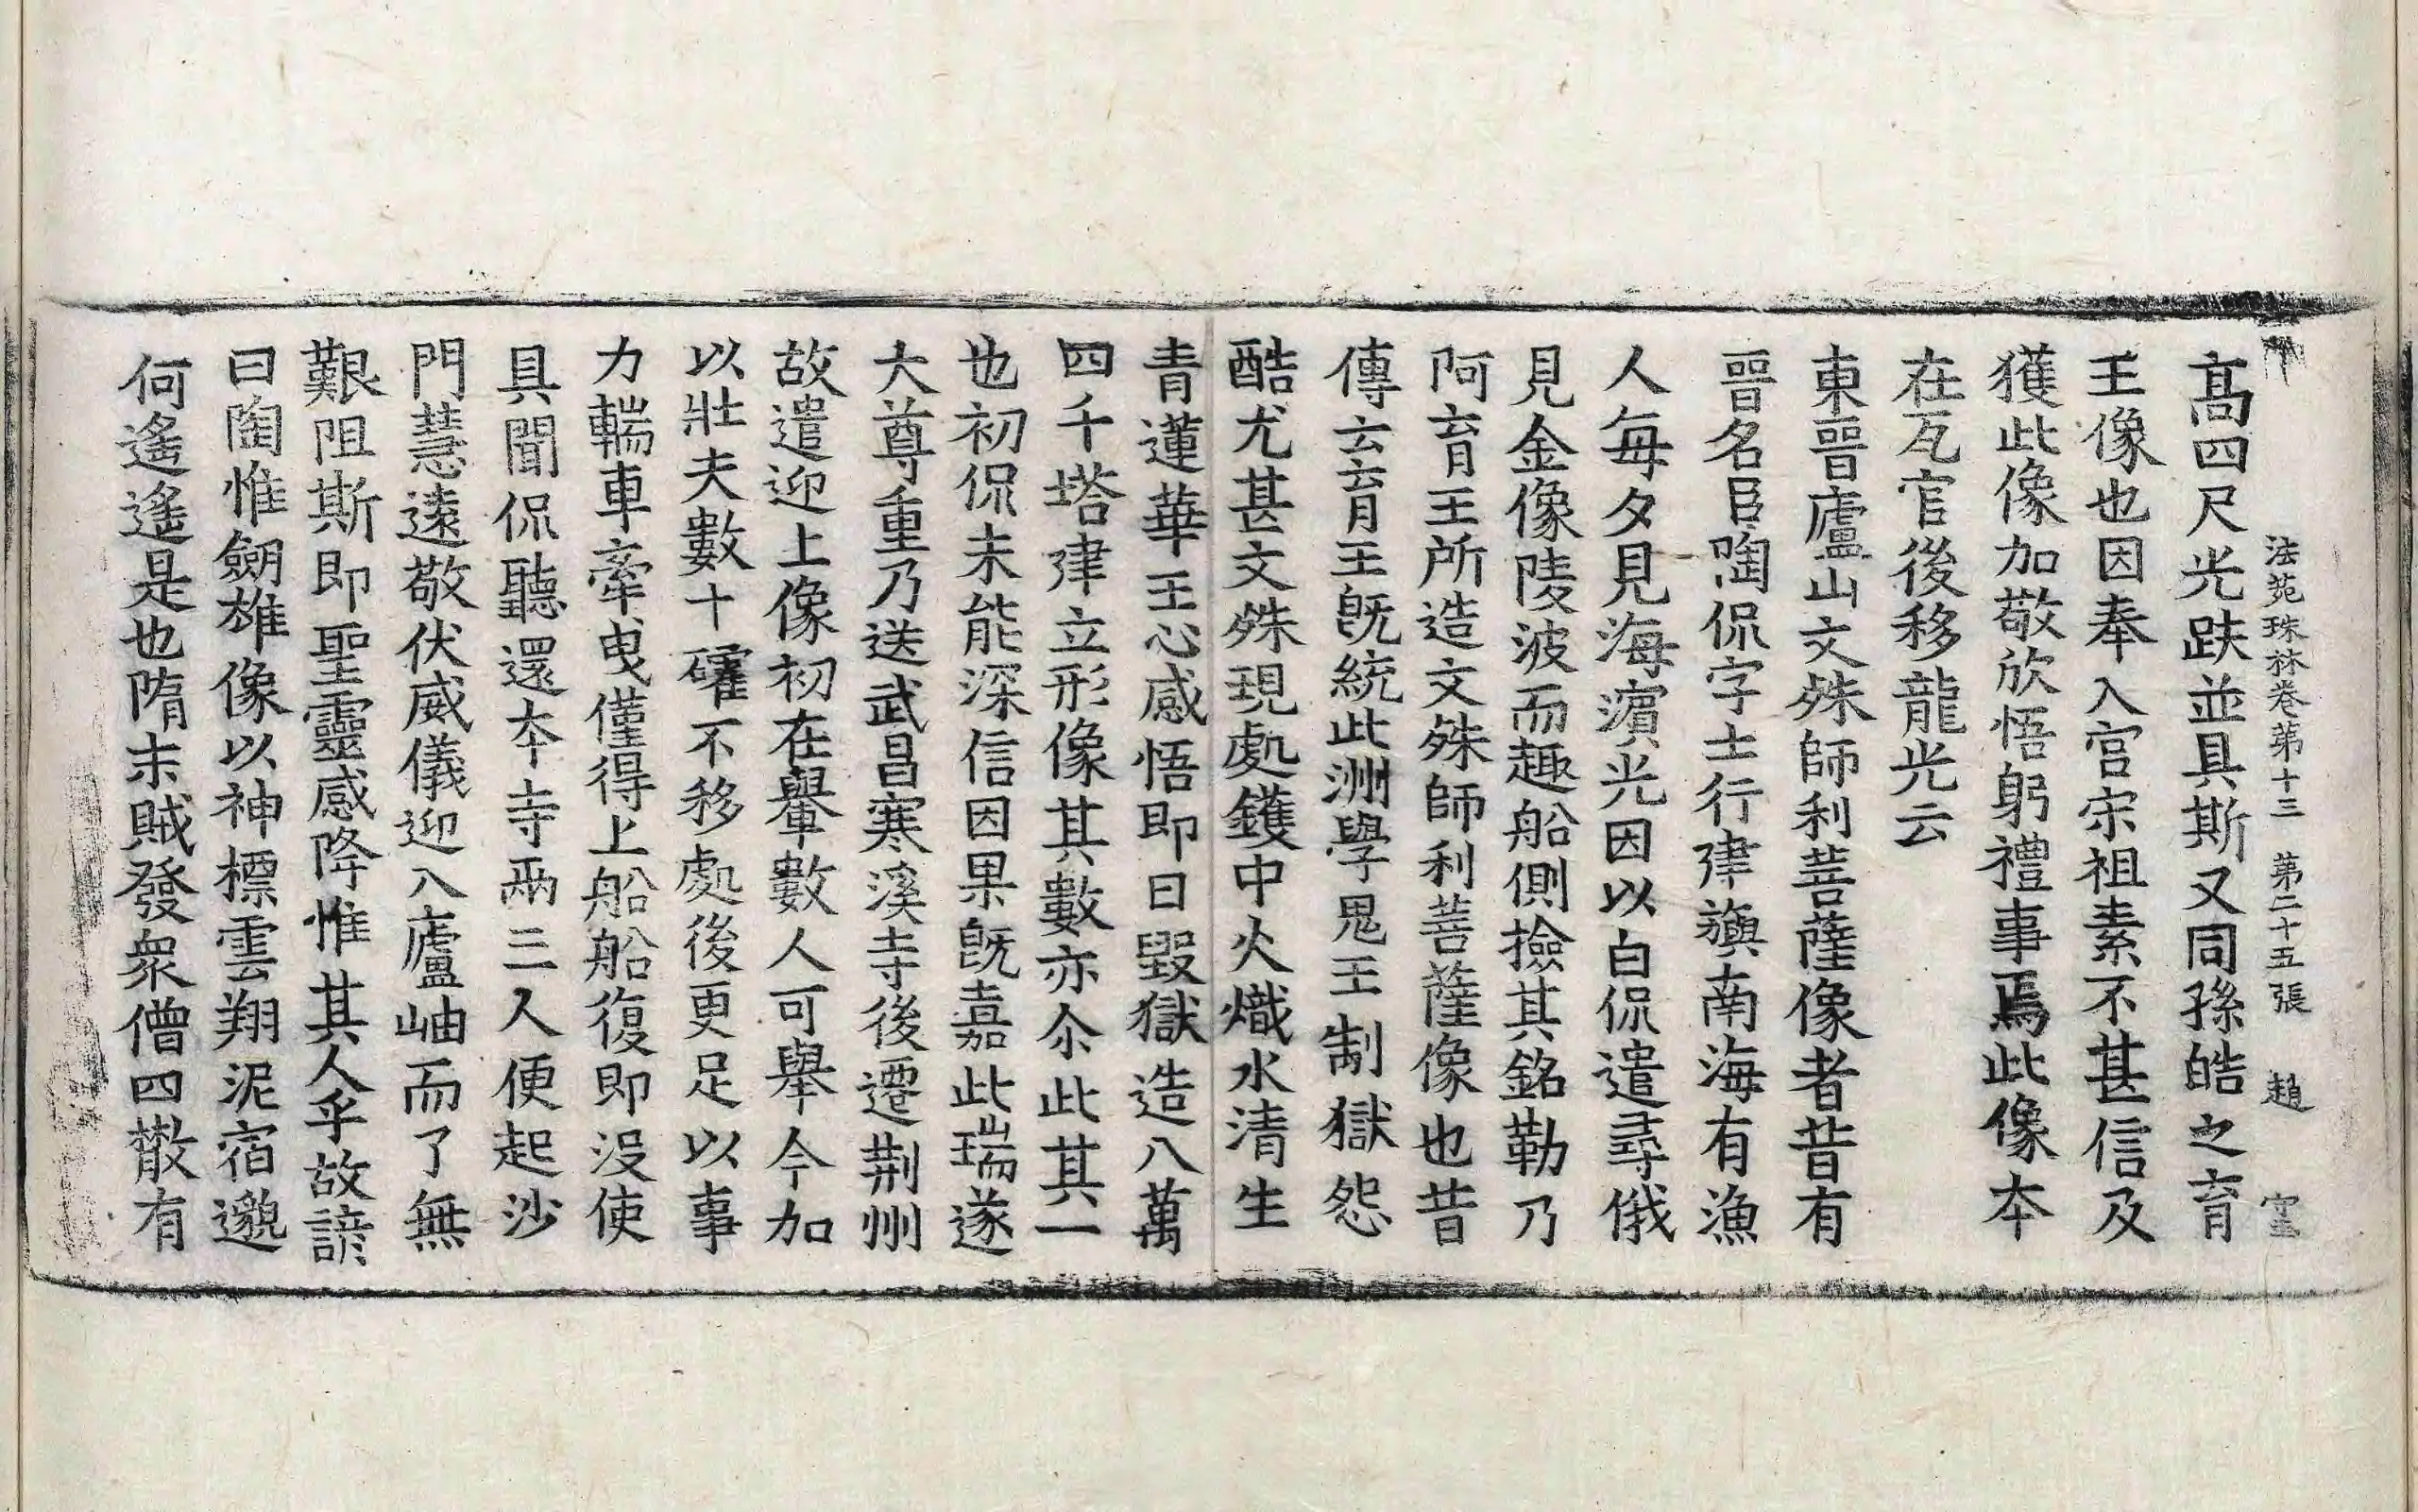 法苑珠林卷第十三 第二十五張 趙 守
髙四尺光趺並具斯又同孫皓之育
王像也因奉入宫宋祖素不甚信及
獲此像加敬欣悟躬禮事焉此像本
在瓦官後移龍光云
東晉廬山文殊師利菩薩像者昔有
晉名臣陶侃字士行建旟南海有漁
人每夕見海濵光因以白侃遣尋俄
見金像陵波而趣船側撿其銘勒乃
阿育王所造文殊師利菩薩像也昔
傳云育王既統此洲學鬼王制獄怨
酷尤甚文殊現處鑊中火熾水清生
青蓮華王心感悟即日毀獄造八萬
四千塔建立形像其數亦尒此其一
也初侃未能深信因果既嘉此瑞遂
大尊重乃送武昌寒溪寺後遷荆州
故遣迎上像初在轝數人可舉今加
以壯夫數十確不移處後更足以事
力輲車牽曳僅得上船船復即没使
具聞侃聽還本寺兩三人便起沙
門慧遠敬伏威儀迎入廬岫而了無
艱阻斯即聖靈感降惟其人乎故諺
曰陶惟劒雄像以神標雲翔泥宿邈
何遙遙是也隋末賊發衆僧四散有